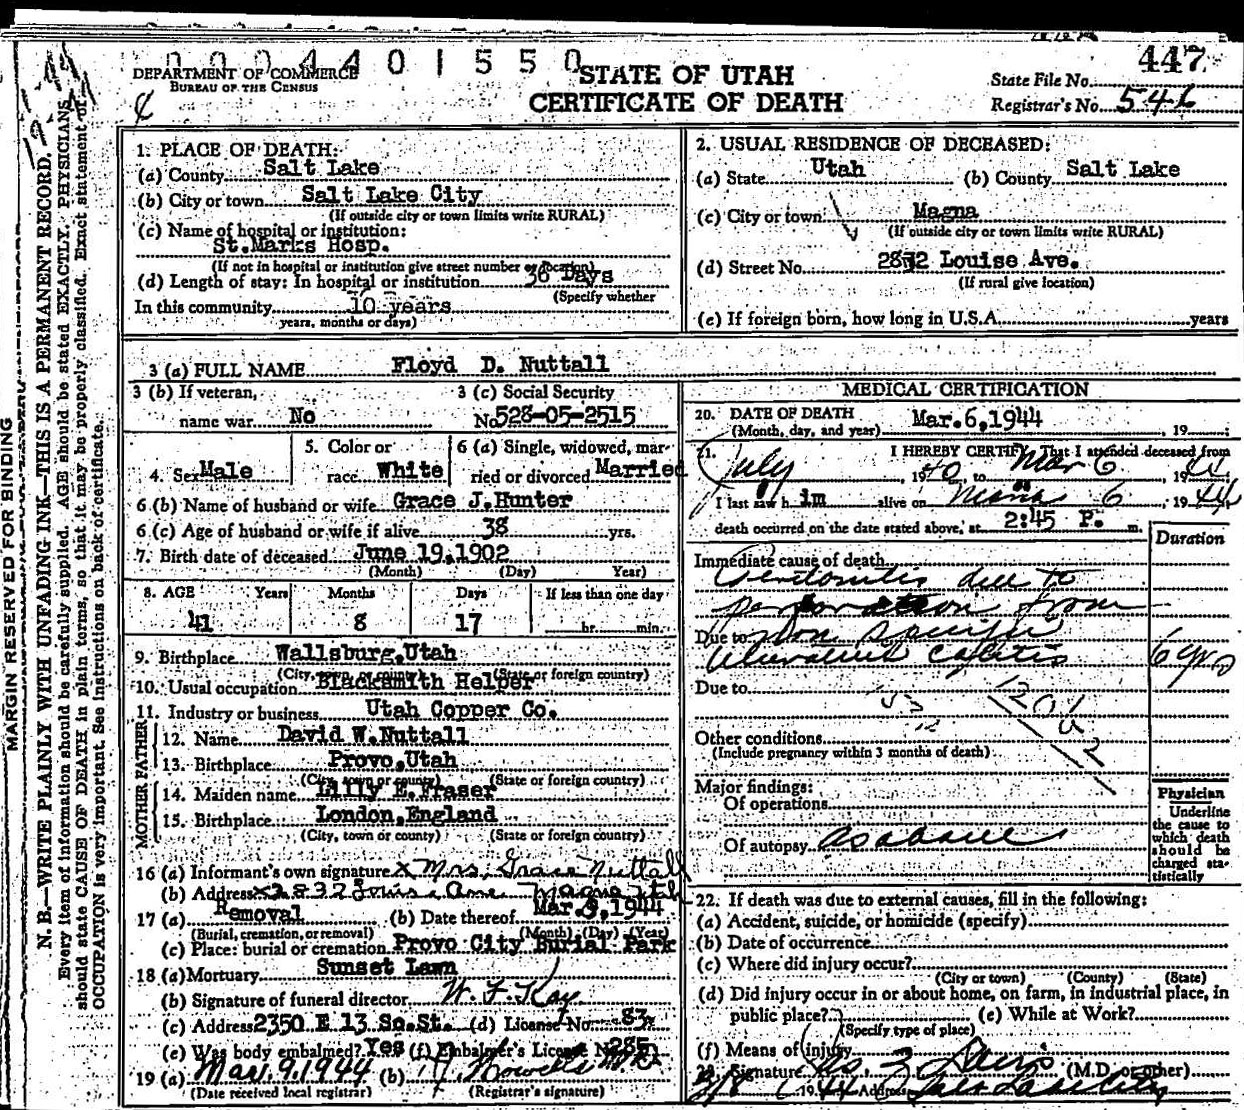 0004401550
DEPARTMENT OF COMMERCE
BUREAU OF THE CENSUS
STATE OF UTAH
CERTIFICATE OF DEATH
447
State File No.
Registrar's No. 546
MARGIN RESERVED FOR BINDING
N. B.—WRITE PLAINLY WITH UNFADING INK—THIS IS A PERMANENT RECORD.
Every item of information should be carefully supplied. AGE should be stated EXACTLY. PHYSICIANS
should state CAUSE OF DEATH in plain terms, so that it may be properly classified. Exact statement of
OCCUPATION is very important. See instructions on back of certificate.
1. PLACE OF DEATH:
(a) County Salt Lake
(b) City or town Salt Lake City
(If outside city or town limits write RURAL)
(c) Name of hospital or institution:
St.Marks Hosp.
(If not in hospital or institution give street number or location)
(d) Length of stay: In hospital or institution 36 Days
(Specify whether
In this community 10 years
years, months or days)
2. USUAL RESIDENCE OF DECEASED:
(a) State Utah (b) County Salt Lake
(c) City or town Magna
(If outside city or town limits write RURAL)
(d) Street No. Louise Ave.
(If rural give location)
(e) If foreign born, how long in U.S.A. years
3 (a) FULL NAME Floyd D. Nuttall
3 (b) If veteran, 3 (c) Social Security
name war No No. 528-05-2515
4. Sex Male
5. Color or
race White
6 (a) Single, widowed, mar-
ried or divorced Married
6 (b) Name of husband or wife Grace J.Hunter
6 (c) Age of husband or wife if alive 38 yrs.
7. Birth date of deceased June 19,1902
(Month) (Day) Year)
8. AGE Years Months Days If less than one day
41 8 17 hr. min.
9. Birthplace Wallsburg,Utah
(City, town or county) (State or foreign country)
10. Usual occupation Blacksmith Helper
11. Industry or business Utah Copper Co.
FATHER
12. Name David W.Nuttall
13. Birthplace Provo,Utah
(City, town or county) (State or foreign country)
MOTHER
14. Maiden name Lilly E.Fraser
15. Birthplace London,England
(City, town or county) (State or foreign country)
16 (a) Informant's own signature x Mrs. Grace Nuttall
(b) Address x2832 Louise Ave. Magna Utah
17 (a) Removal (b) Date thereof Mar. 9,1944
(Burial, cremation, or removal) (Month) (Day) (Year)
(c) Place: burial or cremation Provo City Burial Park
18 (a) Mortuary Sunset Lawn
(b) Signature of funeral director W. F. Kay
(c) Address 2350 E 13 So.St. (d) License No. 83
(e) Was body embalmed? Yes (f) Embalmer's License No. 285
19 (a) Mar. 9, 1944 (b)
(Date received local registrar) (Registrar's signature)
MEDICAL CERTIFICATION
20. DATE OF DEATH Mar.6,1944
(Month, day, and year) , 19
21. I HEREBY CERTIFY That I attended deceased from
July , 1940, to Mar 6 , 1944
I last saw him alive on 6 , 1944
death occurred on the date stated above, at 2:45 P. m.
Duration
Immediate cause of death
Peritonitis due to
perforation from
Due to Non specific
Ulcerative Colitis 6 yrs
Due to
Other conditions
(Include pregnancy within 3 months of death)
Major findings:
Of operations
Of autopsy as above
Physician
Underline
the cause to
which death
should be
charged sta-
tistically
22. If death was due to external causes, fill in the following:
(a) Accident, suicide, or homicide (specify)
(b) Date of occurrence
(c) Where did injury occur?
(City or town) (County) (State)
(d) Did injury occur in or about home, on farm, in industrial place, in
public place? (e) While at Work?
(Specify type of place)
(f) Means of injury
23. Signature (M.D. or other)
1944 Address Salt Lake City